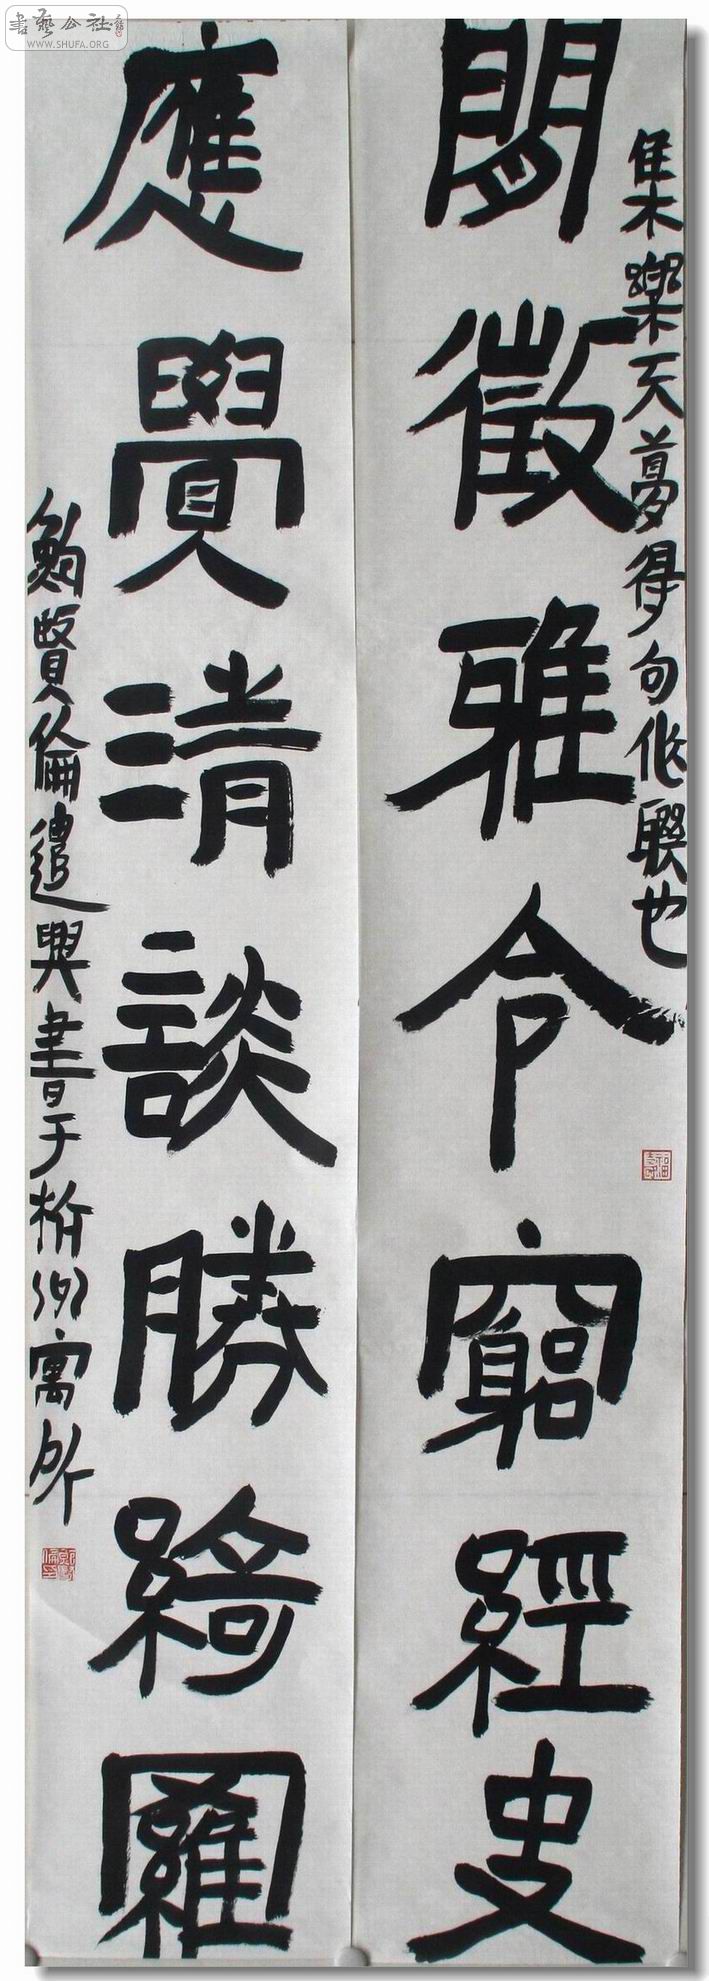 書藝公社
WWW.SHUFA.ORG
閒徵雅令窮經史
集樂天夢得句作聯也
應覺清談勝綺羅
鄭賢倫遣興書于杭州寓所